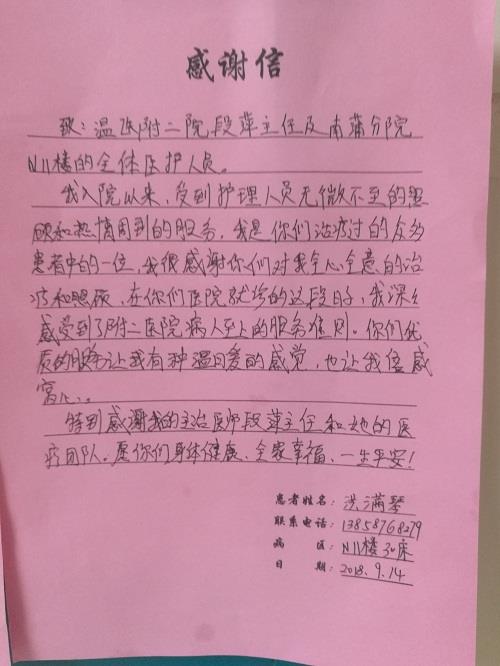 感谢信
致：温医附二院段萍主任及南蒲分院
N11楼的全体医护人员。
我入院以来，受到护理人员无微不至的照
顾和热情周到的服务，我是你们治疗过的众多
患者中的一位，我很感谢你们对我全心全意的治
疗和照顾，在你们医院就诊的这段日子，我深深
感受到了附二医院病人至上的服务准则。你们优
质的服务让我有种温日爱的感觉，也让我倍感
窝心。
特别感谢我的主治医师段萍主任和她的医
疗团队。愿你们身体健康、全家幸福、一生平安！
患者姓名：洪满琴
联系电话：13858768279
病 区：N11楼30床
日 期：2018.9.14